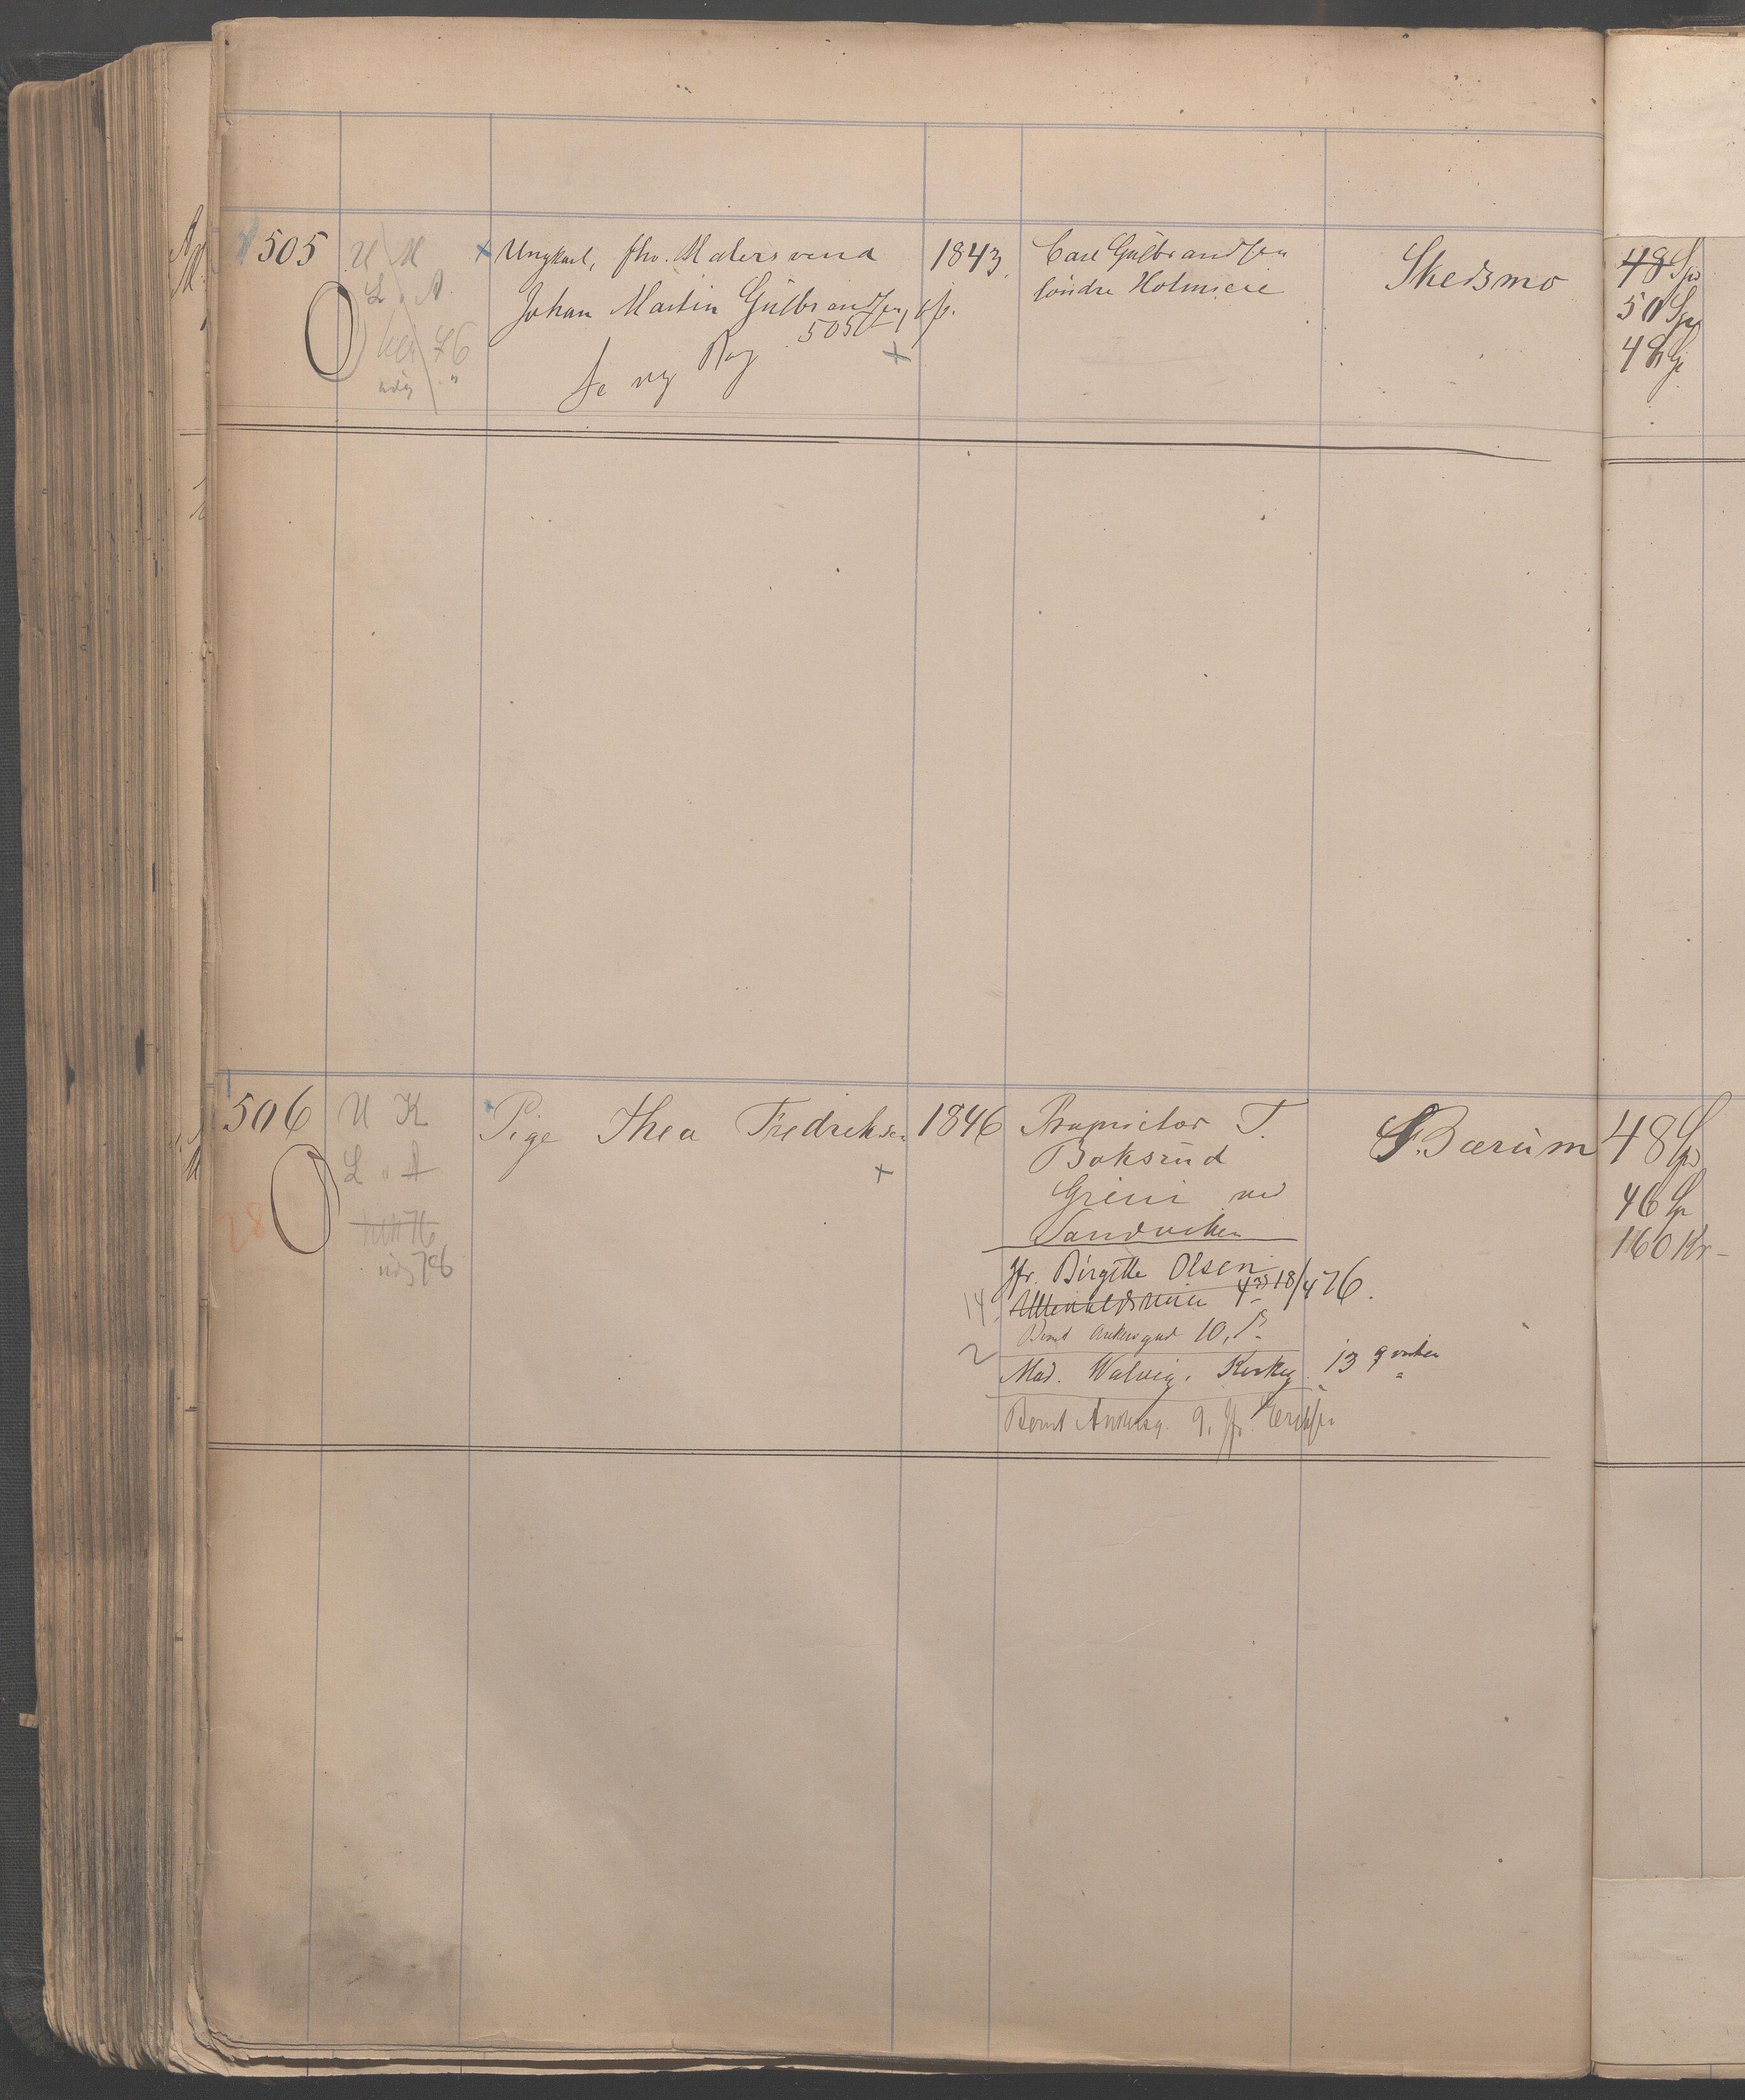 505
U M
L " A
76
Ungkarl, fhv. Malersvend
Johan Martin Gülbrandsen, Gfr.
505
se ny Reg
1843
Carl Gülbrandsen
söndre Holmseie
Skedsmo
48 Spd
50 Spd
48 Sp
506
U K
L " A
76
28
Pige Thea Fredriksen
1846
Proprietør T.
Boksrud
Grini ved
Sandviken
Jfr. Birgitte Olsen
18/4 76.
14
Bernt Ankersgad 10,
2
Mad. Walvig, Kirkeg. 13
Bernt Ankersg. 9, Jfr. Eriksen
S. Bærüm
48 Spd
46 Sp
160 Kr